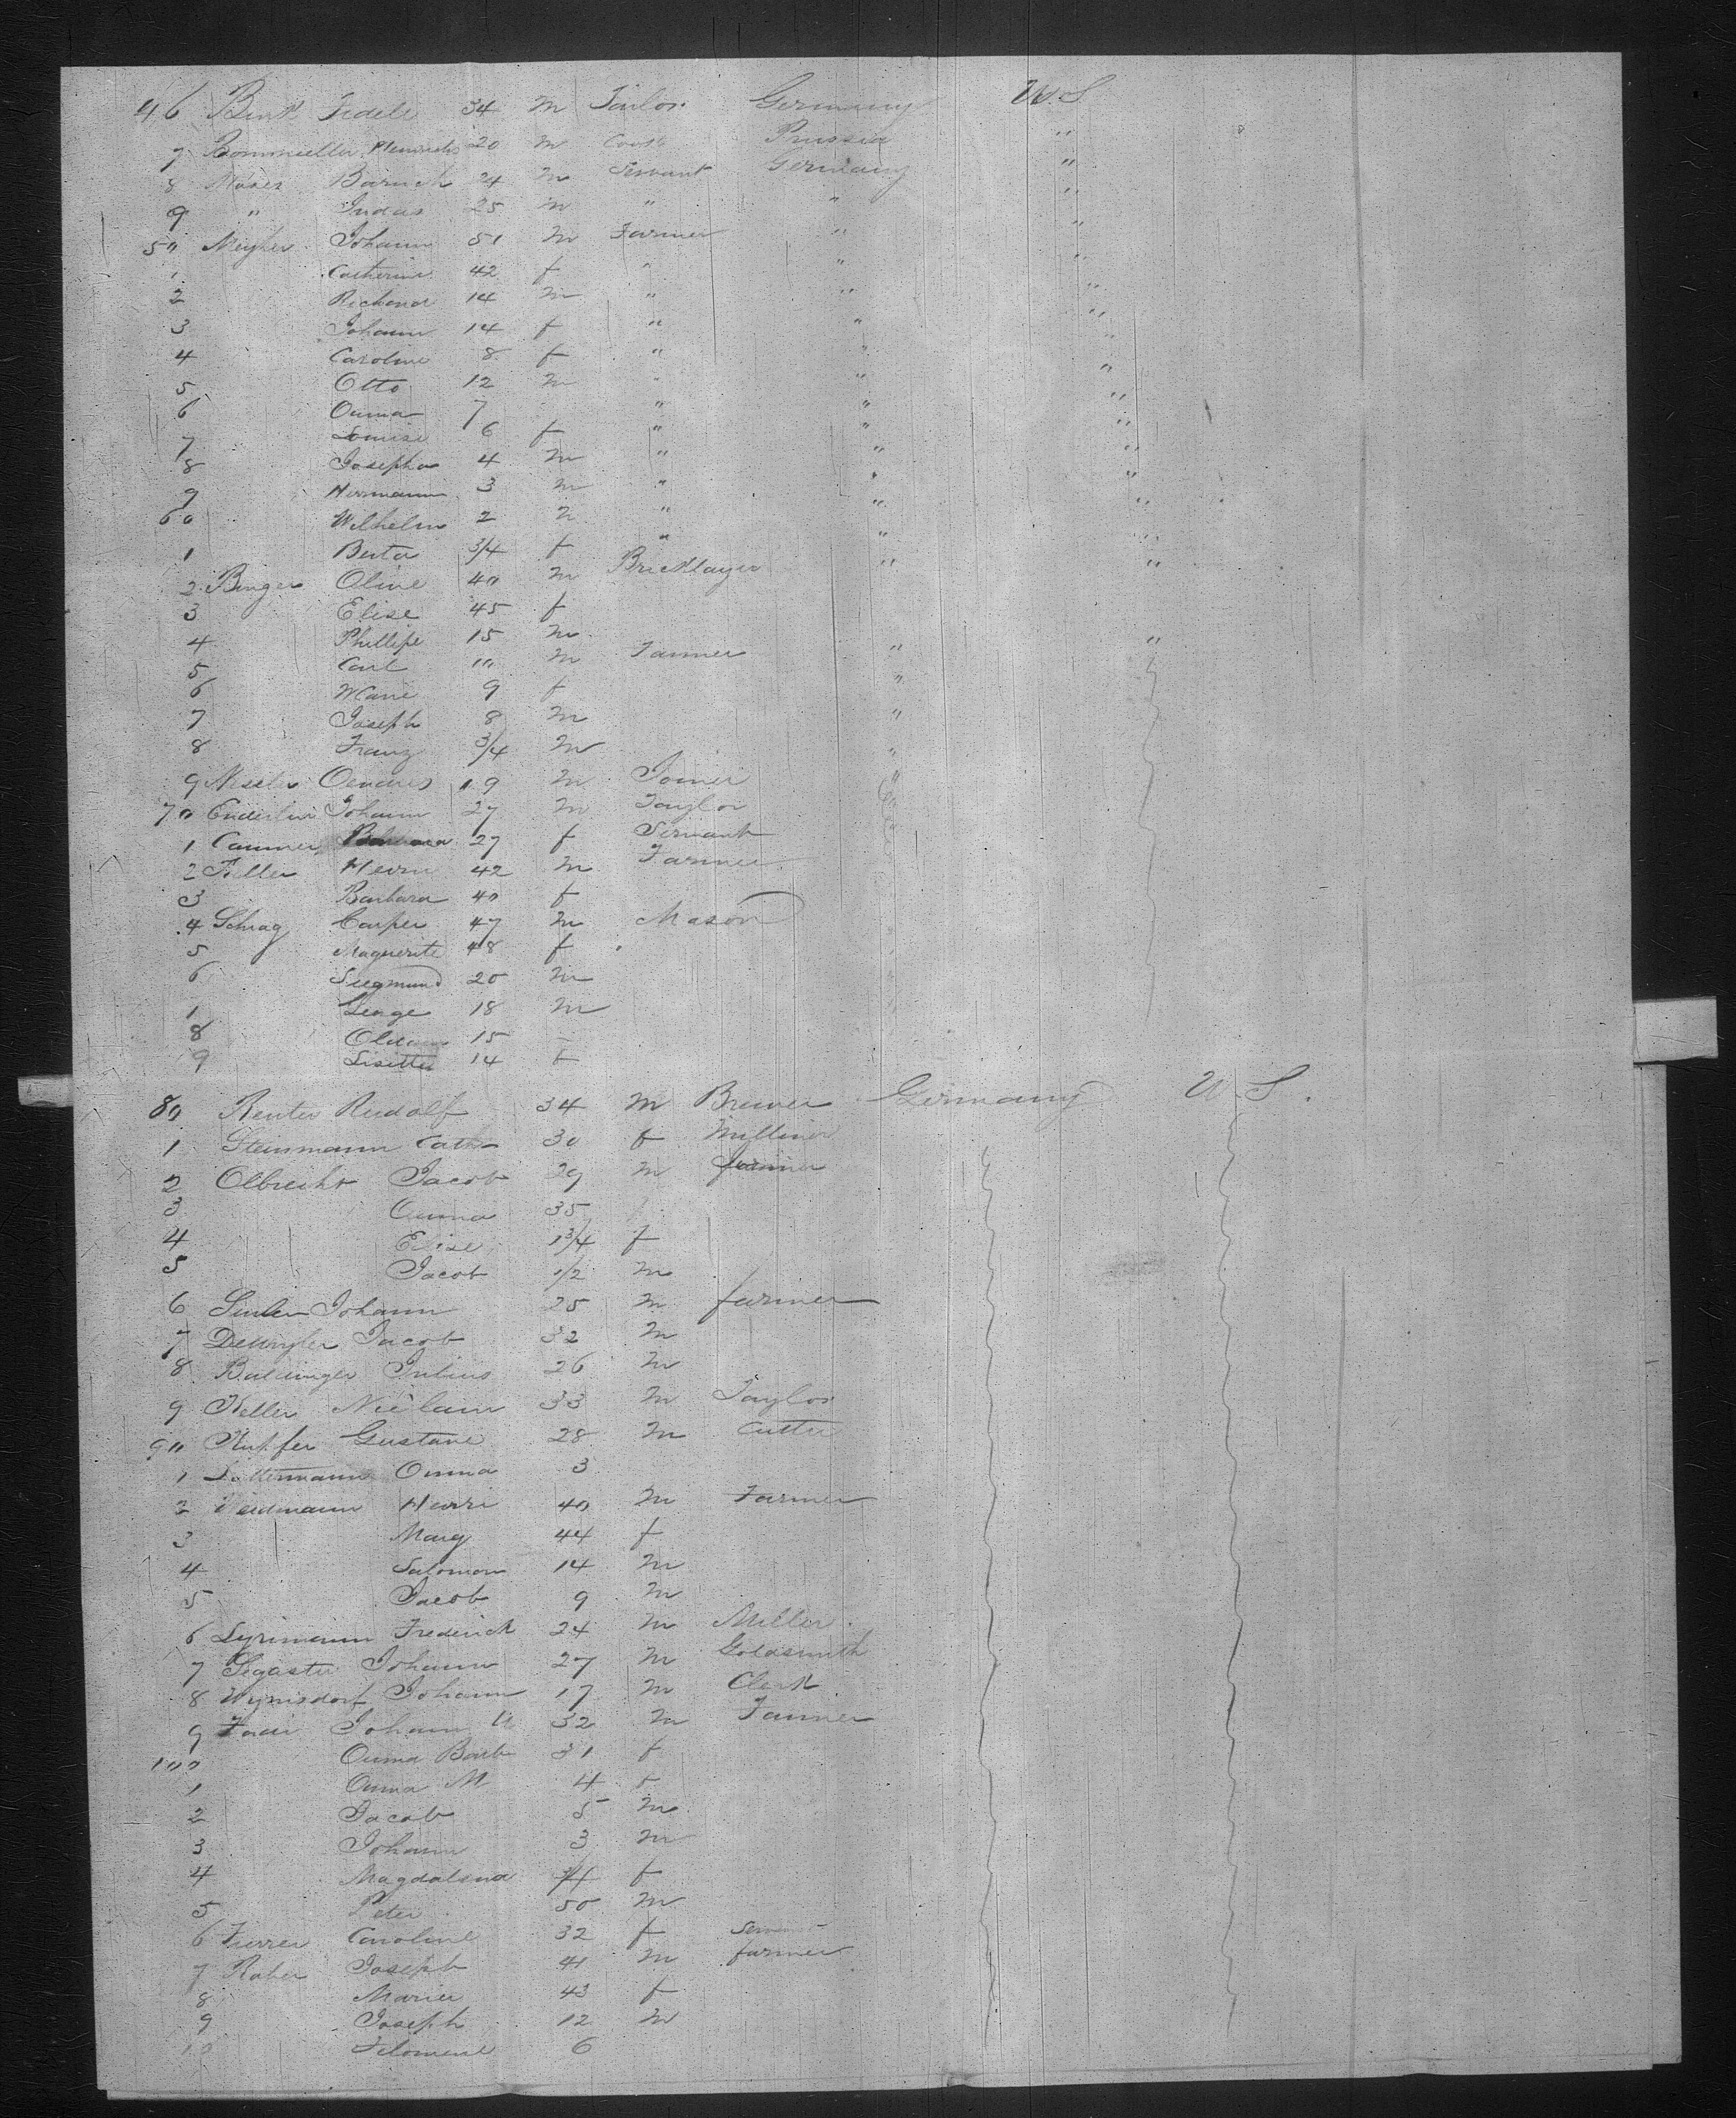 46 Burk Fidele 34 m Tailor Germany U.S
7 Bommueller Heinrich 20 m Cook Prussia "
8 Moses Baruch 24 m Servant Germany "
9 " Judas 25 m " " "
50 Meyher Johann 51 m Farmer " "
1 Catherine 42 f " " "
2 Richard 14 m " " "
3 Johann 14 f " " "
4 Caroline 8 f " " "
5 Otto 12 m " " "
6 Anna 7 " " "
7 Louise 6 f " " "
8 Josepha 4 m " " "
9 Hermann 3 m " " "
60 Wilhelm 2 m " " "
1 Berta 3/4 f " " "
2 Binger Oline 40 m Bricklayer " "
3 Elise 45 f
4 Phillipe 15 m "
5 Carl 10 m Farmer "
6 Marie 9 f "
7 Joseph 8 m "
8 Franz 3/4 m "
9 Andreas 19 m Joiner "
70 Enderlin Johann 27 m Taylor
1 Barbara 27 f Servant
2 Feller Henri 42 m Farmer
3 Barbara 40 f
4 Schrag Casper 47 m Mason
5 Maguerite 48 f
6 Siegmund 20 m
1 George 18 m
8 15
9 Lisette 14 f
80 Renter Rudolf 34 m Brewer Germany U.S.
1 Steinmann Cath 30 f Milliner
2 Olbrecht Jacob 29 m farmer
3 Anna 35
4 Elise 1 3/4 f
5 Jacob 1/2 m
6 Johann 25 m farmer
7 Jacob 32 m
8 Baldinger Julius 26 m
9 Keller 33 m Taylor
90 Kupfer Gustave 28 m Cutter
1 Anna 3
2 Weidmann Henri 40 m Farmer
3 Mary 44 f
4 Salomon 14 m
5 Jacob 9 m
6 Frederick 24 m Miller
7 Segaster Johann 27 m Goldsmith
8 Wynisdorf Johann 17 m Clerk
9 Johann U 32 m Farmer
100 Anna Barb 31 f
1 Anna M 4 f
2 Jacob 5 m
3 Johann 3 m
4 Magdalena 3/4 f
5 Peter 50 m
6 Furrer Caroline 32 f
7 Raber Joseph 41 m farmer
8 Marie 43 f
9 Joseph 12 m
10 Filomene 6